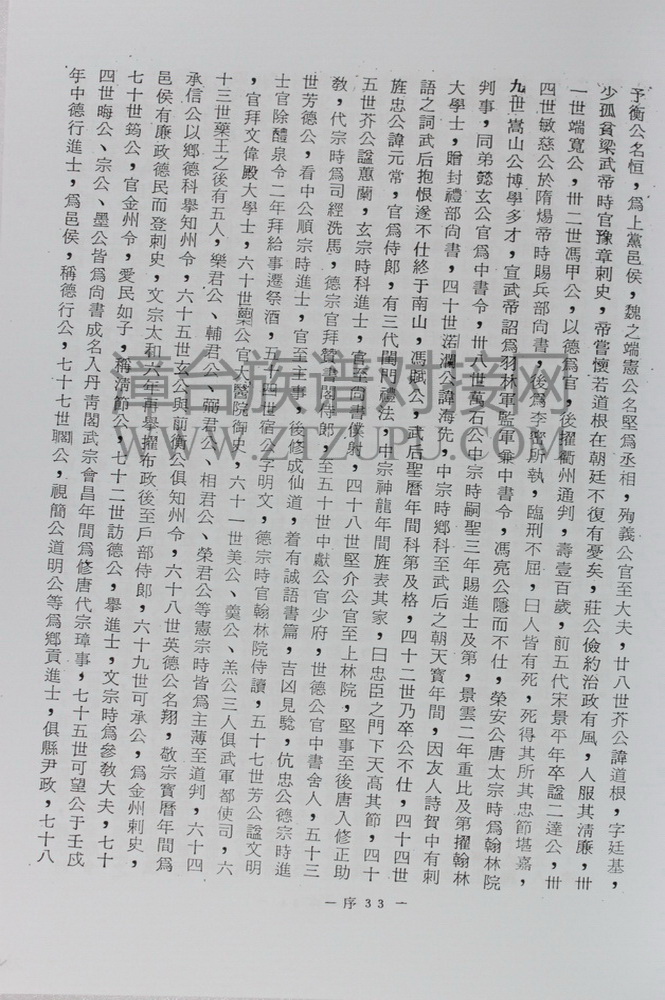 予衡公名恒，爲上黨邑侯，魏之端憲公名堅爲丞相，殉義公官至大夫，廿八世芥公諱道根，字廷基，
少孤貧梁武帝時官豫章刺史，帝嘗懷若道根在朝廷不復有憂矣，莊公儉約治政有風，人服其清廉，卅
一世端寬公，卅二世馮甲公，以德爲官，後擢衢州通判，壽壹百歲，前五代宋景平年卒諡二達公，卅
四世敏慈公於隋煬帝時賜兵部尚書，後爲李密所執，臨刑不屈，曰人皆有死，死得其所其忠節堪嘉，
九世嵩山公博學多才，宣武帝詔爲羽林軍監軍兼中書令，馮亮公隱而不仕，榮安公唐太宗時爲翰林院
判事，同弟懿玄公官爲中書令，卅八世萬石公中宗時嗣聖三年賜進士及第，景雲二年重比及第擢翰林
大學士，贈封禮部尚書，四十世渃瀾公諱海先，中宗時鄉科至武后之朝天寶年間，因友人詩賀中有刺
語之詞武后抱恨遂不仕終于南山，馮賦公，武后聖曆年間科第及格，四十二世乃卒公不仕，四十四世
旌忠公諱元常，官爲侍郎，有三代閨門禮法，中宗神龍年間旌表其家，曰忠臣之門下天高其節，四十
五世芥公諡蕙蘭，玄宗時科進士，官至尚書僕射，四十八世堅介公官至上林院，堅事至後唐入修正助
敎，代宗時爲司經洗馬，德宗官拜贊書閣侍郎，至五十世中獻公官少府，世德公官中書舍人，五十三
世芳德公，看中公順宗時進士，官至主事，後修成仙道，着有誠語書篇，吉凶見驗，伉忠公德宗時進
士官除醴泉令二年拜給事遷祭酒，五十四世宿公字明文，德宗時官翰林院侍讀，五十七世芳公諡文明
，官拜文偉殿大學士，六十世藥公官大醫院御史，六十一世美公、羹公、羔公三人俱武軍都使司，六
十三世藥王之後有五人，樂君公、輔君公、弼君公、相君公、榮君公等憲宗時皆爲主薄至道判，六十四
承信公以鄉德科舉知州令，六十五世玄公與前衡公俱知州令，六十八世英德公名翔，敬宗寶曆年間爲
邑侯有廉政德民而登刺史，文宗太和六年再舉擢布政後至戶部侍郎，六十九世可承公，爲金州剌史，
七十世筠公，官金州令，愛民如子，稱清節公，七十二世訪德公，舉進士，文宗時爲參敎大夫，七十
四世晦公、宗公、墨公皆爲尚書成名入丹靑閣武宗會昌年間爲修唐代宗璋事，七十五世可望公于壬戌
年中德行進士，爲邑侯，稱德行公，七十七世關公，視簡公道明公等爲鄉貢進士，俱縣尹政，七十八
－序33－
漳台族谱对接网
WWW.ZTZUPU.COM